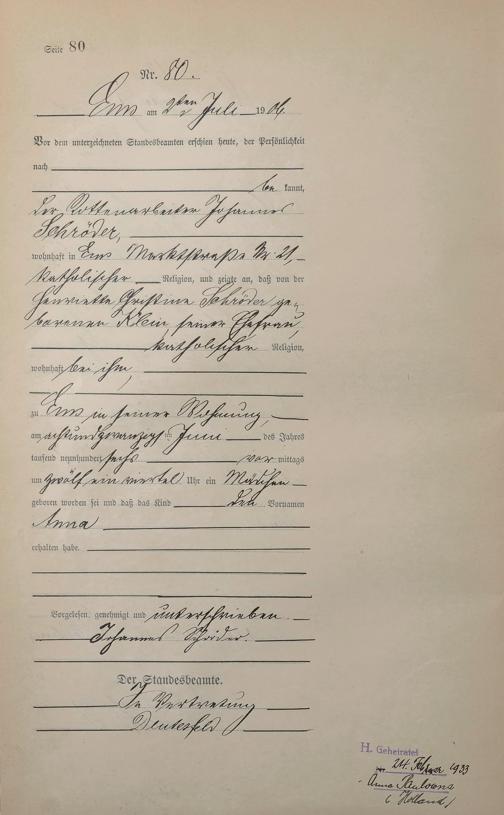 Seite 80
Nr. 80.
Ems am 2ten Juli 1906.
Vor dem unterzeichneten Standesbeamten erschien heute, der Persönlichkeit
nach
be kannt,
der Rottenarbeiter Johannes
Schröder,
wohnhaft in Ems Marktstraße Nr 21
katholischer Religion, und zeigte an, daß von der
Henriette Christine Schröder ge-
borenen Klein seiner Ehefrau,
katholischer Religion,
wohnhaft bei ihm,
zu Ems in seiner Wohnung,
am achtundzwanzigsten Juni des Jahres
tausend neunhundert sechs vor mittags
um zwölf ein viertel Uhr ein Mädchen
geboren worden sei und daß das Kind den Vornamen
Anna
erhalten habe.
Vorgelesen, genehmigt und unterschrieben
Johannes Schröder.
Der Standesbeamte.
In Vertretung
H. Geheiratet
24. Februar 1933
Anna
(Holland)